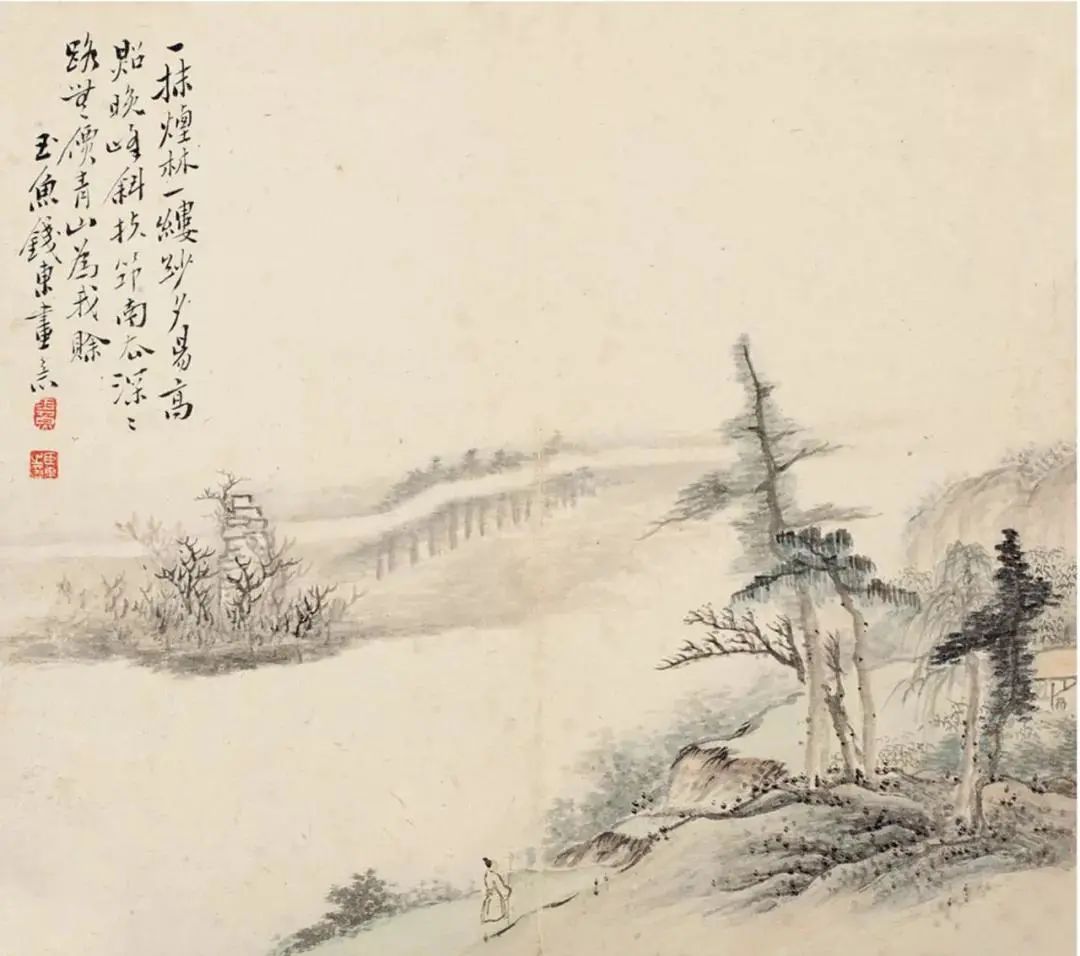 一抹煙林一縷沙夕昜高
貼晚峰斜扶筇南谷深〻
路無價青山為我賒
玉魚錢東畫